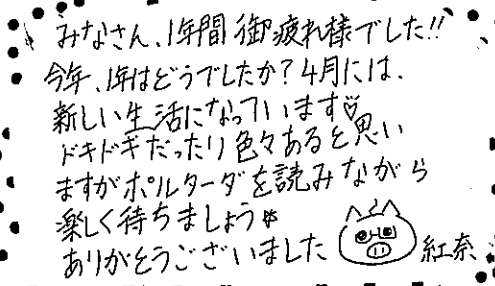 みなさん、1年間御疲れ様でした!!
今年、1年はどうでしたか?4月には、
新しい生活になっています♡
ドキドキだったり色々あると思い
ますがポルターダを読みながら
楽しく待ちましょう
ありがとうございました
紅奈